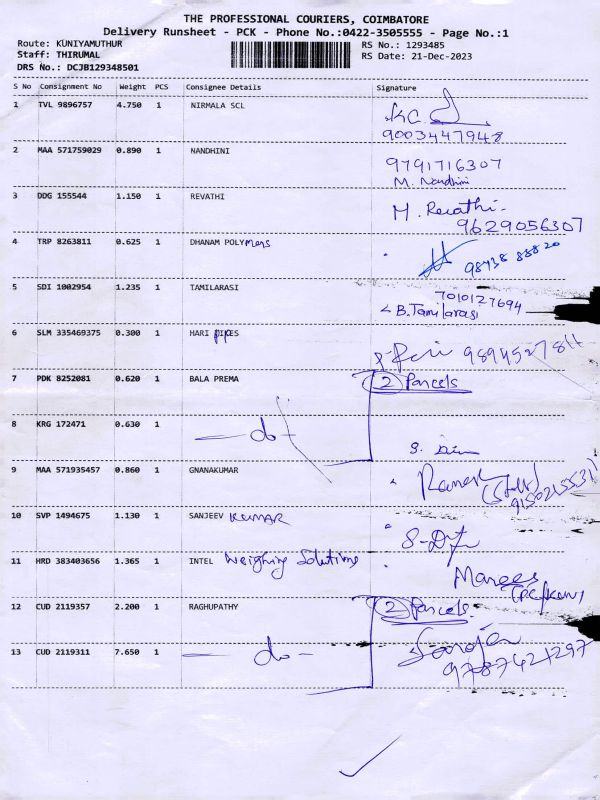 THE PROFESSIONAL COURIERS, COIMBATORE
Delivery Runsheet - PCK - Phone No.:0422-3505555 - Page No.:1
Route: KUNIYAMUTHUR RS No.: 1293485
Staff: THIRUMAL RS Date: 21-Dec-2023
DRS No.: DCJB129348501
S No Consignment No Weight PCS Consignee Details Signature
1 TVL 9896757 4.750 1 NIRMALA SCL
9003447948
2 MAA 571759029 0.890 1 NANDHINI 9791716307
M. Nandhini
3 DDG 155544 1.150 1 REVATHI M. Revathi
9629056307
4 TRP 8263811 0.625 1 DHANAM POLYMERS
98438 88820
5 SDI 1002954 1.235 1 TAMILARASI 7010127694
B. Tamilarasi
6 SLM 335469375 0.300 1 HARI PIPES
7 PDK 8252081 0.620 1 BALA PREMA 2 Parcels
8 KRG 172471 0.630 1 - do -
9 MAA 571935457 0.860 1 GNANAKUMAR Ramesh
(Staff)
10 SVP 1494675 1.130 1 SANJEEV KUMAR
11 HRD 383403656 1.365 1 INTEL Weighing Solutions
12 CUD 2119357 2.200 1 RAGHUPATHY 2 Parcels
13 CUD 2119311 7.650 1 - do - Saroja
9787421297